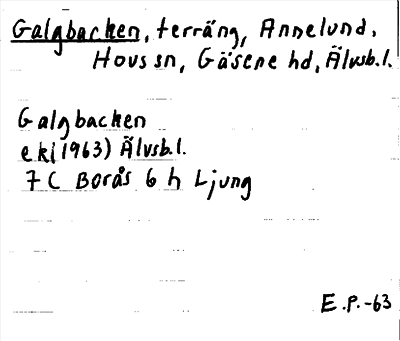 Galgbacken, terräng, Annelund,
Hovs sn, Gäsene hd, Älvsb.l.
Galgbacken
ek(1963) Älvsb.l.
7 C Borås 6 h Ljung
E.P.-63